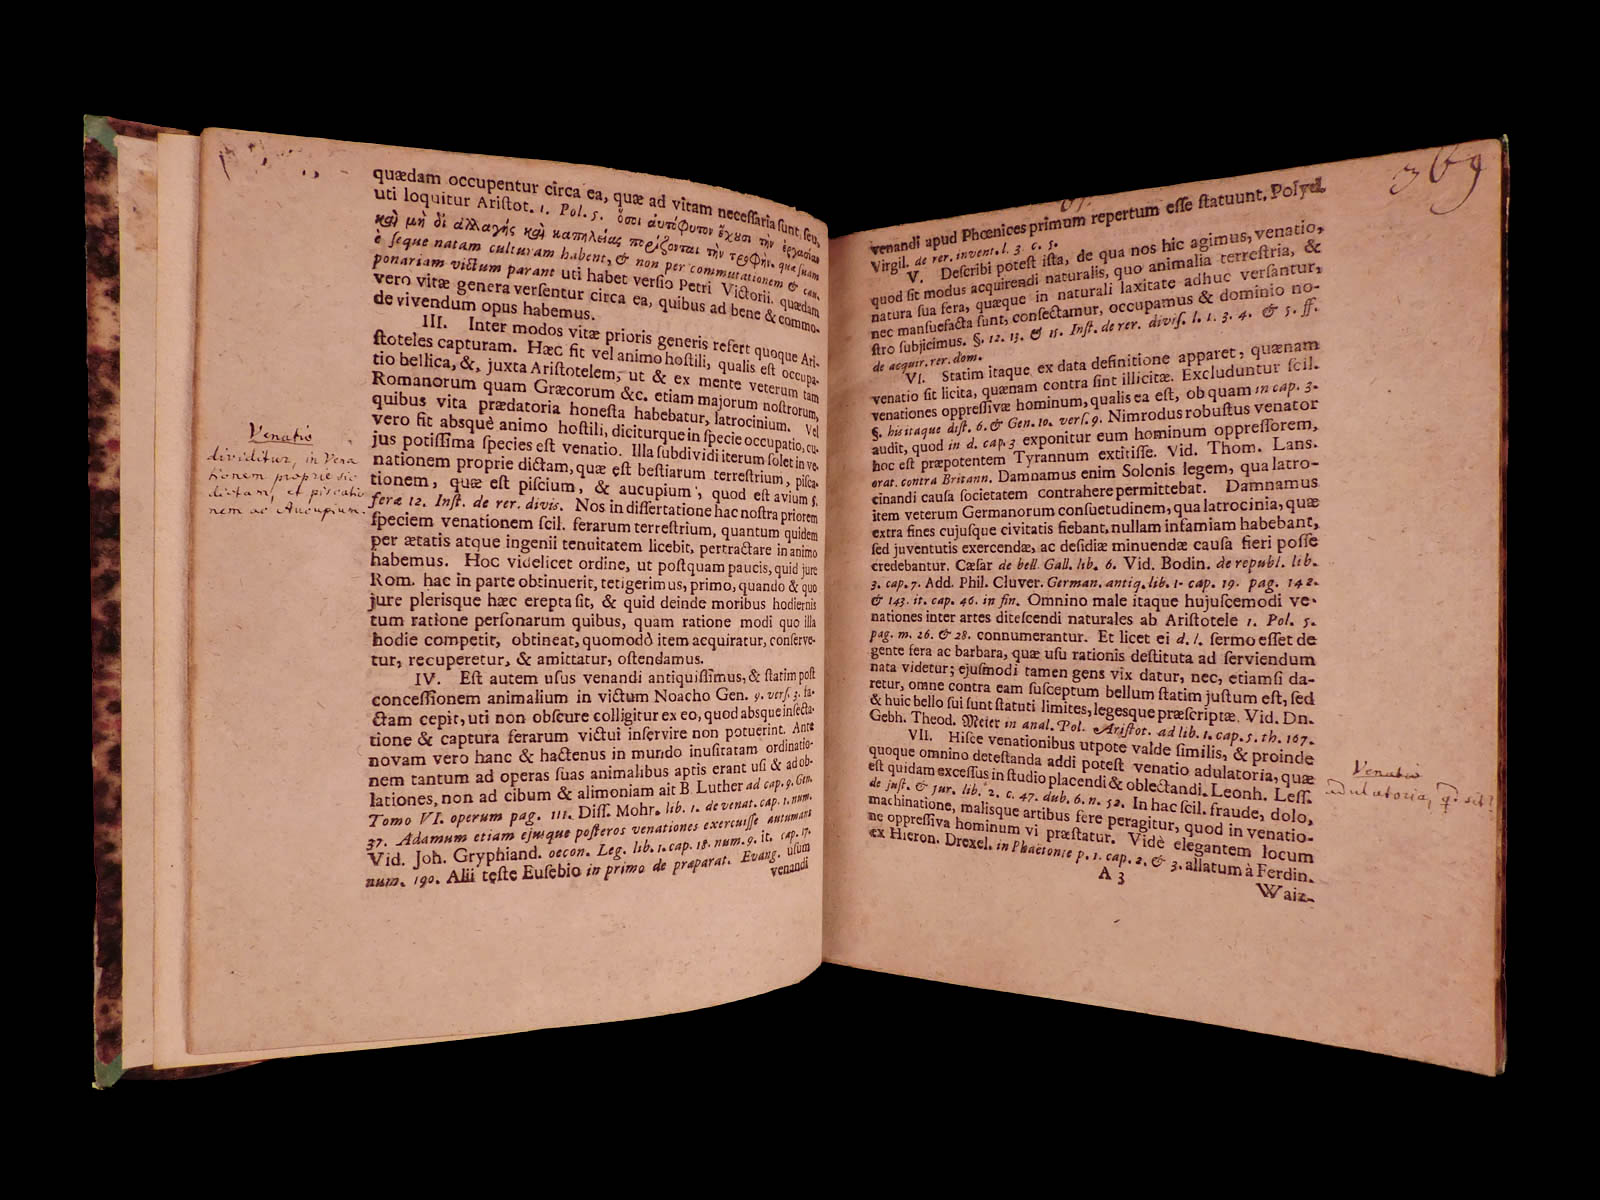 quædam occupentur circa ea, quæ ad vitam necessaria sunt, seu,
uti loquitur Aristot. 1. Pol. 5. ὅσοι αὐτόφυτον ἔχουσι τὴν ἐργασίαν
καὶ μὴ δι ἀλλαγῆς καὶ καπηλείας πορίζονται τὴν τροφήν. qui suam
è seque natam culturam habent, & non per commutationem & cau-
ponariam victum parant uti habet versio Petri Victorii. quædam
vero vitæ genera versentur circa ea, quibus ad bene & commo-
de vivendum opus habemus.
III. Inter modos vitæ prioris generis refert quoque Ari-
stoteles capturam. Hæc fit vel animo hostili, qualis est occupa-
tio bellica, &, juxta Aristotelem, ut & ex mente veterum tam
Romanorum quam Græcorum &c. etiam majorum nostrorum,
quibus vita prædatoria honesta habebatur, latrocinium. Vel
vero fit absquè animo hostili, diciturque in specie occupatio, cu-
jus potissima species est venatio. Illa subdividi iterum solet in ve-
nationem proprie dictam, quæ est bestiarum terrestrium, pisca-
tionem, quæ est piscium, & aucupium, quod est avium §.
feræ 12. Inst. de rer. divis. Nos in dissertatione hac nostra priorem
speciem venationem scil. ferarum terrestrium, quantum quidem
per ætatis atque ingenii tenuitatem licebit, pertractare in animo
habemus. Hoc videlicet ordine, ut postquam paucis, quid jure
Rom. hac in parte obtinuerit, tetigerimus, primo, quando & quo
jure plerisque hæc erepta sit, & quid deinde moribus hodiernis
tum ratione personarum quibus, quam ratione modi quo illa
hodie competit, obtineat, quomodò item acquiratur, conserve-
tur, recuperetur, & amittatur, ostendamus.
IV. Est autem usus venandi antiquissimus, & statim post
concessionem animalium in victum Noacho Gen. 9. vers. 3. fa-
ctam cepit, uti non obscure colligitur ex eo, quod absque insecta-
tione & captura ferarum victui inservire non potuerint. Ante
novam vero hanc & hactenus in mundo inusitatam ordinatio-
nem tantum ad operas suas animalibus aptis erant usi & ad ob-
lationes, non ad cibum & alimoniam ait B Luther ad cap. 9. Gen.
Tomo VI. operum pag. 111. Diss. Mohr. lib. 1. de venat. cap. 1. num.
37. Adamum etiam ejusque posteros venationes exercuisse autumant
Vid. Joh. Gryphiand. oecon. Leg. lib. 1. cap. 18. num. 9. it. cap. 17.
num. 190. Alii teste Eusebio in primo de præparat. Evang. usum
venandi
Venatio
dividitur, in Vena
tionem proprie sic
dictam, et piscatio
nem ac Aucupium.
369
venandi apud Phœnices primum repertum esse statuunt. Polyd.
Virgil. de rer. invent. l. 3. c. 5.
V. Describi potest ista, de qua nos hic agimus, venatio,
quod sit modus acquirendi naturalis, quo animalia terrestria, &
natura sua fera, quæque in naturali laxitate adhuc versantur,
nec mansuefacta sunt, consectamur, occupamus & dominio no-
stro subjicimus. §. 12. 13. & 15. Inst. de rer. divis. l. 1. 3. 4. & 5. ff.
de acquir. rer. dom.
VI. Statim itaque ex data definitione apparet, quænam
venatio sit licita, quænam contra sint illicitæ. Excluduntur scil.
venationes oppressivæ hominum, qualis ea est, ob quam in cap. 3.
§. his itaque dist. 6. & Gen. 10. vers. 9. Nimrodus robustus venator
audit, quod in d. cap. 3 exponitur eum hominum oppressorem,
hoc est præpotentem Tyrannum extitisse. Vid. Thom. Lans.
orat. contra Britann. Damnamus enim Solonis legem, qua latro-
cinandi causa societatem contrahere permittebat. Damnamus
item veterum Germanorum consuetudinem, qua latrocinia, quæ
extra fines cujusque civitatis fiebant, nullam infamiam habebant,
sed juventutis exercendæ, ac desidiæ minuendæ causa fieri posse
credebantur. Cæsar de bell. Gall. lib. 6. Vid. Bodin. de republ. lib.
3. cap. 7. Add. Phil. Cluver. German. antiq. lib. 1. cap. 19. pag. 142.
& 143. it. cap. 46. in fin. Omnino male itaque hujuscemodi ve-
nationes inter artes ditescendi naturales ab Aristotele 1. Pol. 5.
pag. m. 26. & 28. connumerantur. Et licet ei d. l. sermo esset de
gente fera ac barbara, quæ usu rationis destituta ad serviendum
nata videtur; ejusmodi tamen gens vix datur, nec, etiamsi da-
retur, omne contra eam susceptum bellum statim justum est, sed
& huic bello sui sunt statuti limites, legesque præscriptæ. Vid. Dn.
Gebh. Theod. Meier in anal. Pol. Aristot. ad lib. 1. cap. 5. th. 167.
VII. Hisce venationibus utpote valde similis, & proinde
quoque omnino detestanda addi potest venatio adulatoria, quæ
est quidam excessus in studio placendi & oblectandi. Leonh. Less.
de just. & jur. lib. 2. c. 47. dub. 6. n. 52. In hac scil. fraude, dolo,
machinatione, malisque artibus fere peragitur, quod in venatio-
ne oppressiva hominum vi præstatur. Vide elegantem locum
ex Hieron. Drexel. in Phaëtonte p. 1. cap. 2. & 3. allatum à Ferdin.
A 3
Waiz-
Venatio
adulatoria,